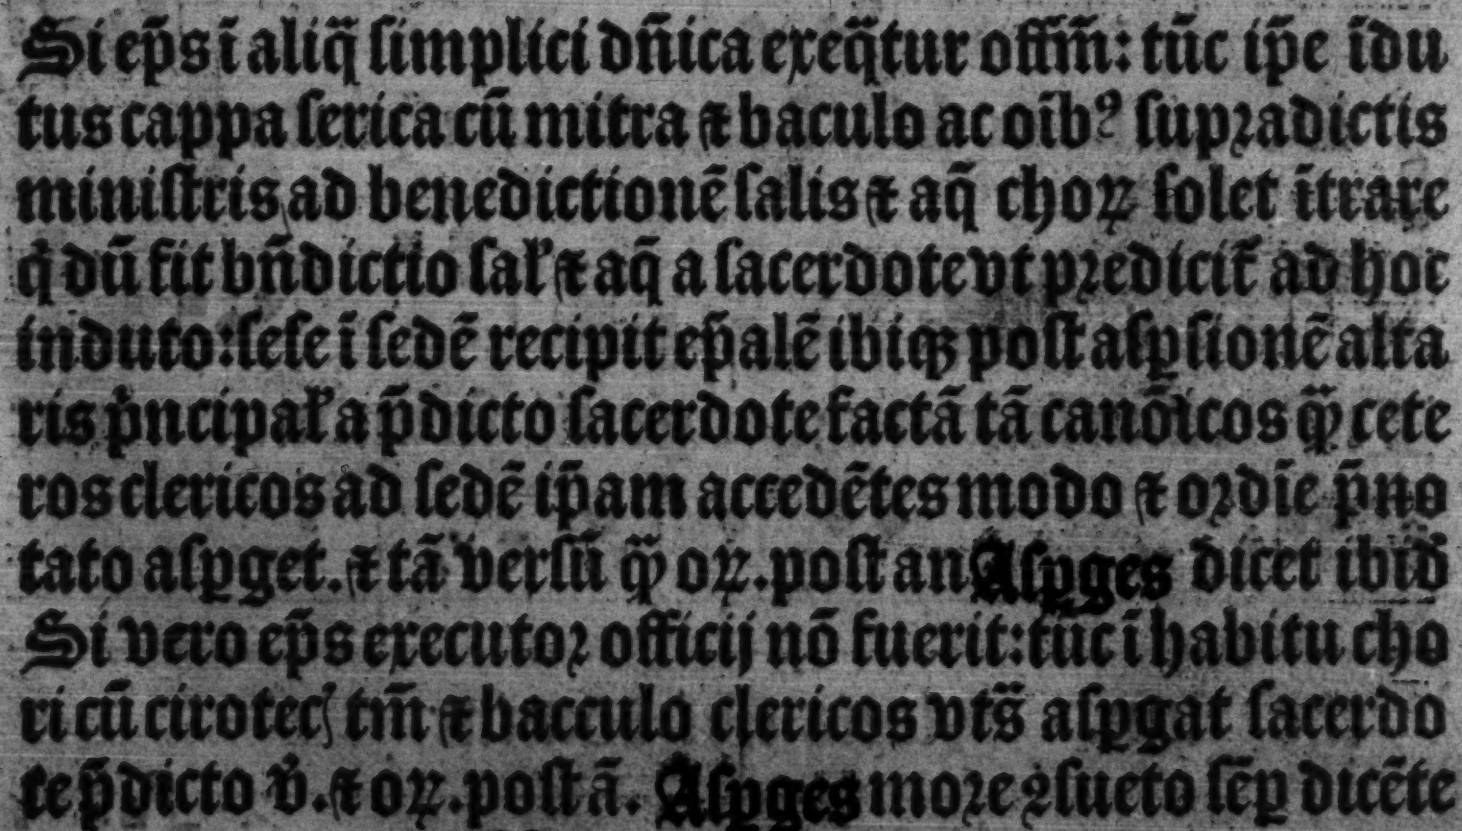 Si ep̃s ī aliq̃ ſimplici dñica exeq̃tur offm̃: tūc ip̃e īdu
tus cappa ſerica cū mitra ⁊ baculo ac oīb⁹ ſupꝛadictis
miniſtris ad benedictionē ſalis ⁊ aq̃ choꝝ ſolet ītrare
q̇ dū fit bñdictio ſal̛ ⁊ aq̃ a ſacerdote vt pꝛedicit̃ ad hoc
induto: ſeſe ī ſedē recipit ep̃alē ibiqꝫ poſt aſꝑſionē alta
ris pͥncipal̛ a p̃dicto ſacerdote factā tā canōicos qᷓꝫ cete
ros clericos ad ſedē ip̃am accedētes modo ⁊ oꝛdīe p̃no
tato aſꝑget. ⁊ tā verſū qᷓꝫ oꝝ. poſt an Aſꝑges dicet ibid̃
Si vero ep̃s executoꝛ officij nō fuerit: tūc ī habitu cho
ri cū cirotecꝭ tm̃ ⁊ bacculo clericos vts̃ aſꝑgat ſacerdo
te p̃dicto v̇. ⁊ oꝝ. poſt ā. Aſꝑges moꝛe ꝯſueto ſēꝑ dicēte